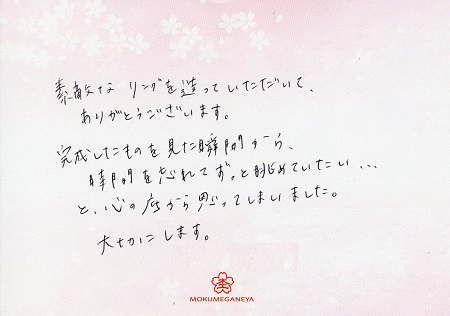 素敵な リングを造っていただいて、
ありがとうございます。
完成したものを見た瞬間から、
時間を忘れてずっと眺めていたい...
と、心の底から思ってしまいました。
大切にします。
MOKUMEGANEYA